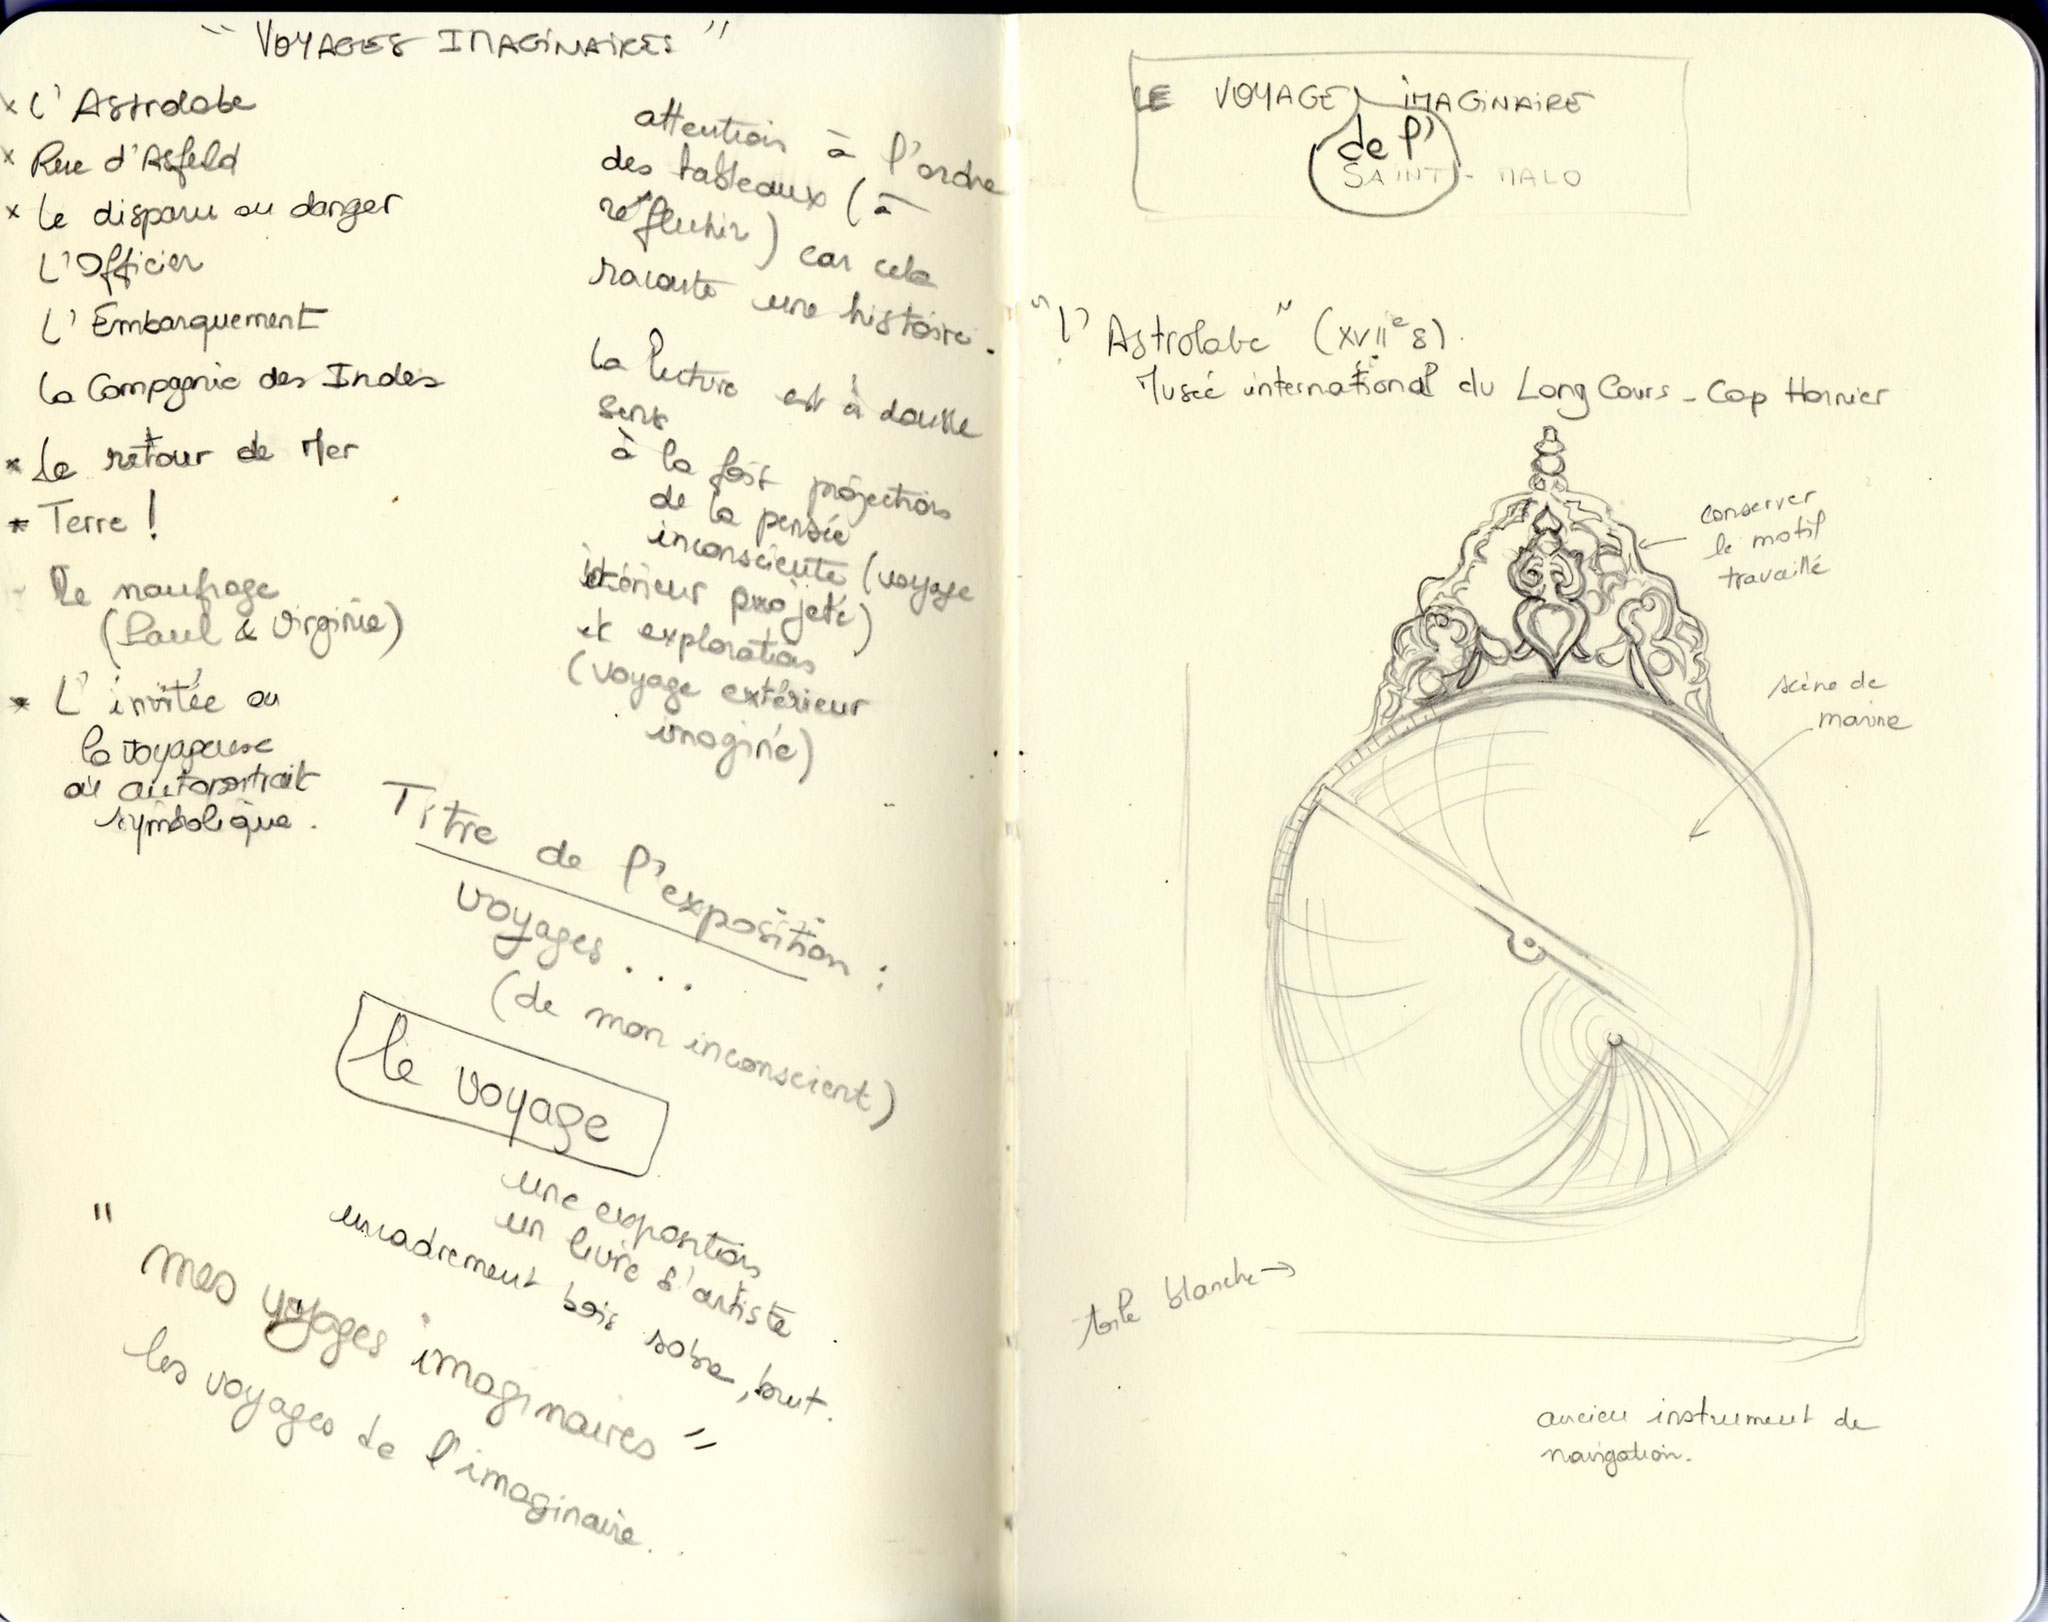 " VOYAGES IMAGINAIRES "
x L'Astrolabe
x Rue d'Asfeld
x Le disparu ou danger
L'Officier
L'Embarquement
La Compagnie des Indes
x Le retour de Mer
x Terre !
- Le naufrage
(Paul & Virginie)
x L'invitée ou
la voyageuse
ou autoportrait
symbolique.
attention à l'ordre
des tableaux (à
réfléchir) car cela
raconte une histoire.
La lecture est à double
sens
à la fois projection
de la pensée
inconsciente (voyage
intérieur projeté)
et exploration
(voyage extérieur
imaginé)
Titre de l'exposition :
voyages...
(de mon inconscient)
le voyage
une exposition
un livre d'artiste
encadrement bois sobre, brut.
"mes voyages imaginaires"
les voyages de l'imaginaire...
LE VOYAGE IMAGINAIRE
de l'
SAINT-MALO
"L'Astrolabe" (XVIIe s).
Musée international du Long Cours - Cap Hornier
conserver
le motif
travaillé
scène de
marine
toile blanche →
ancien instrument de
navigation.